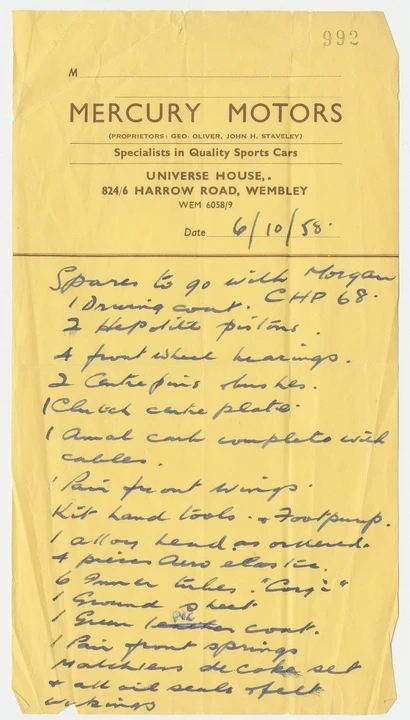 992
M
MERCURY MOTORS
(PROPRIETORS: GEO. OLIVER, JOHN H. STAVELEY)
Specialists in Quality Sports Cars
UNIVERSE HOUSE,
824/6 HARROW ROAD, WEMBLEY
WEM 6058/9
Date 6/10/58.
Spares to go with Morgan
1 Driving coat. CHP 68.
2 Hepolite pistons.
4 front wheel bearings.
2 Centre pins & bushes.
1 Clutch centre plate.
1 Amal carb complete with
cables.
1 Pair front wings.
Kit hand tools. & Footpump.
1 alloy head as ordered.
4 pieces Aero elastic.
6 Inner tubes. "Corgi"
1 Ground sheet
PVC
1 Green leather coat.
1 Pair front springs
Matchless decoke set
& all oil seals & felt